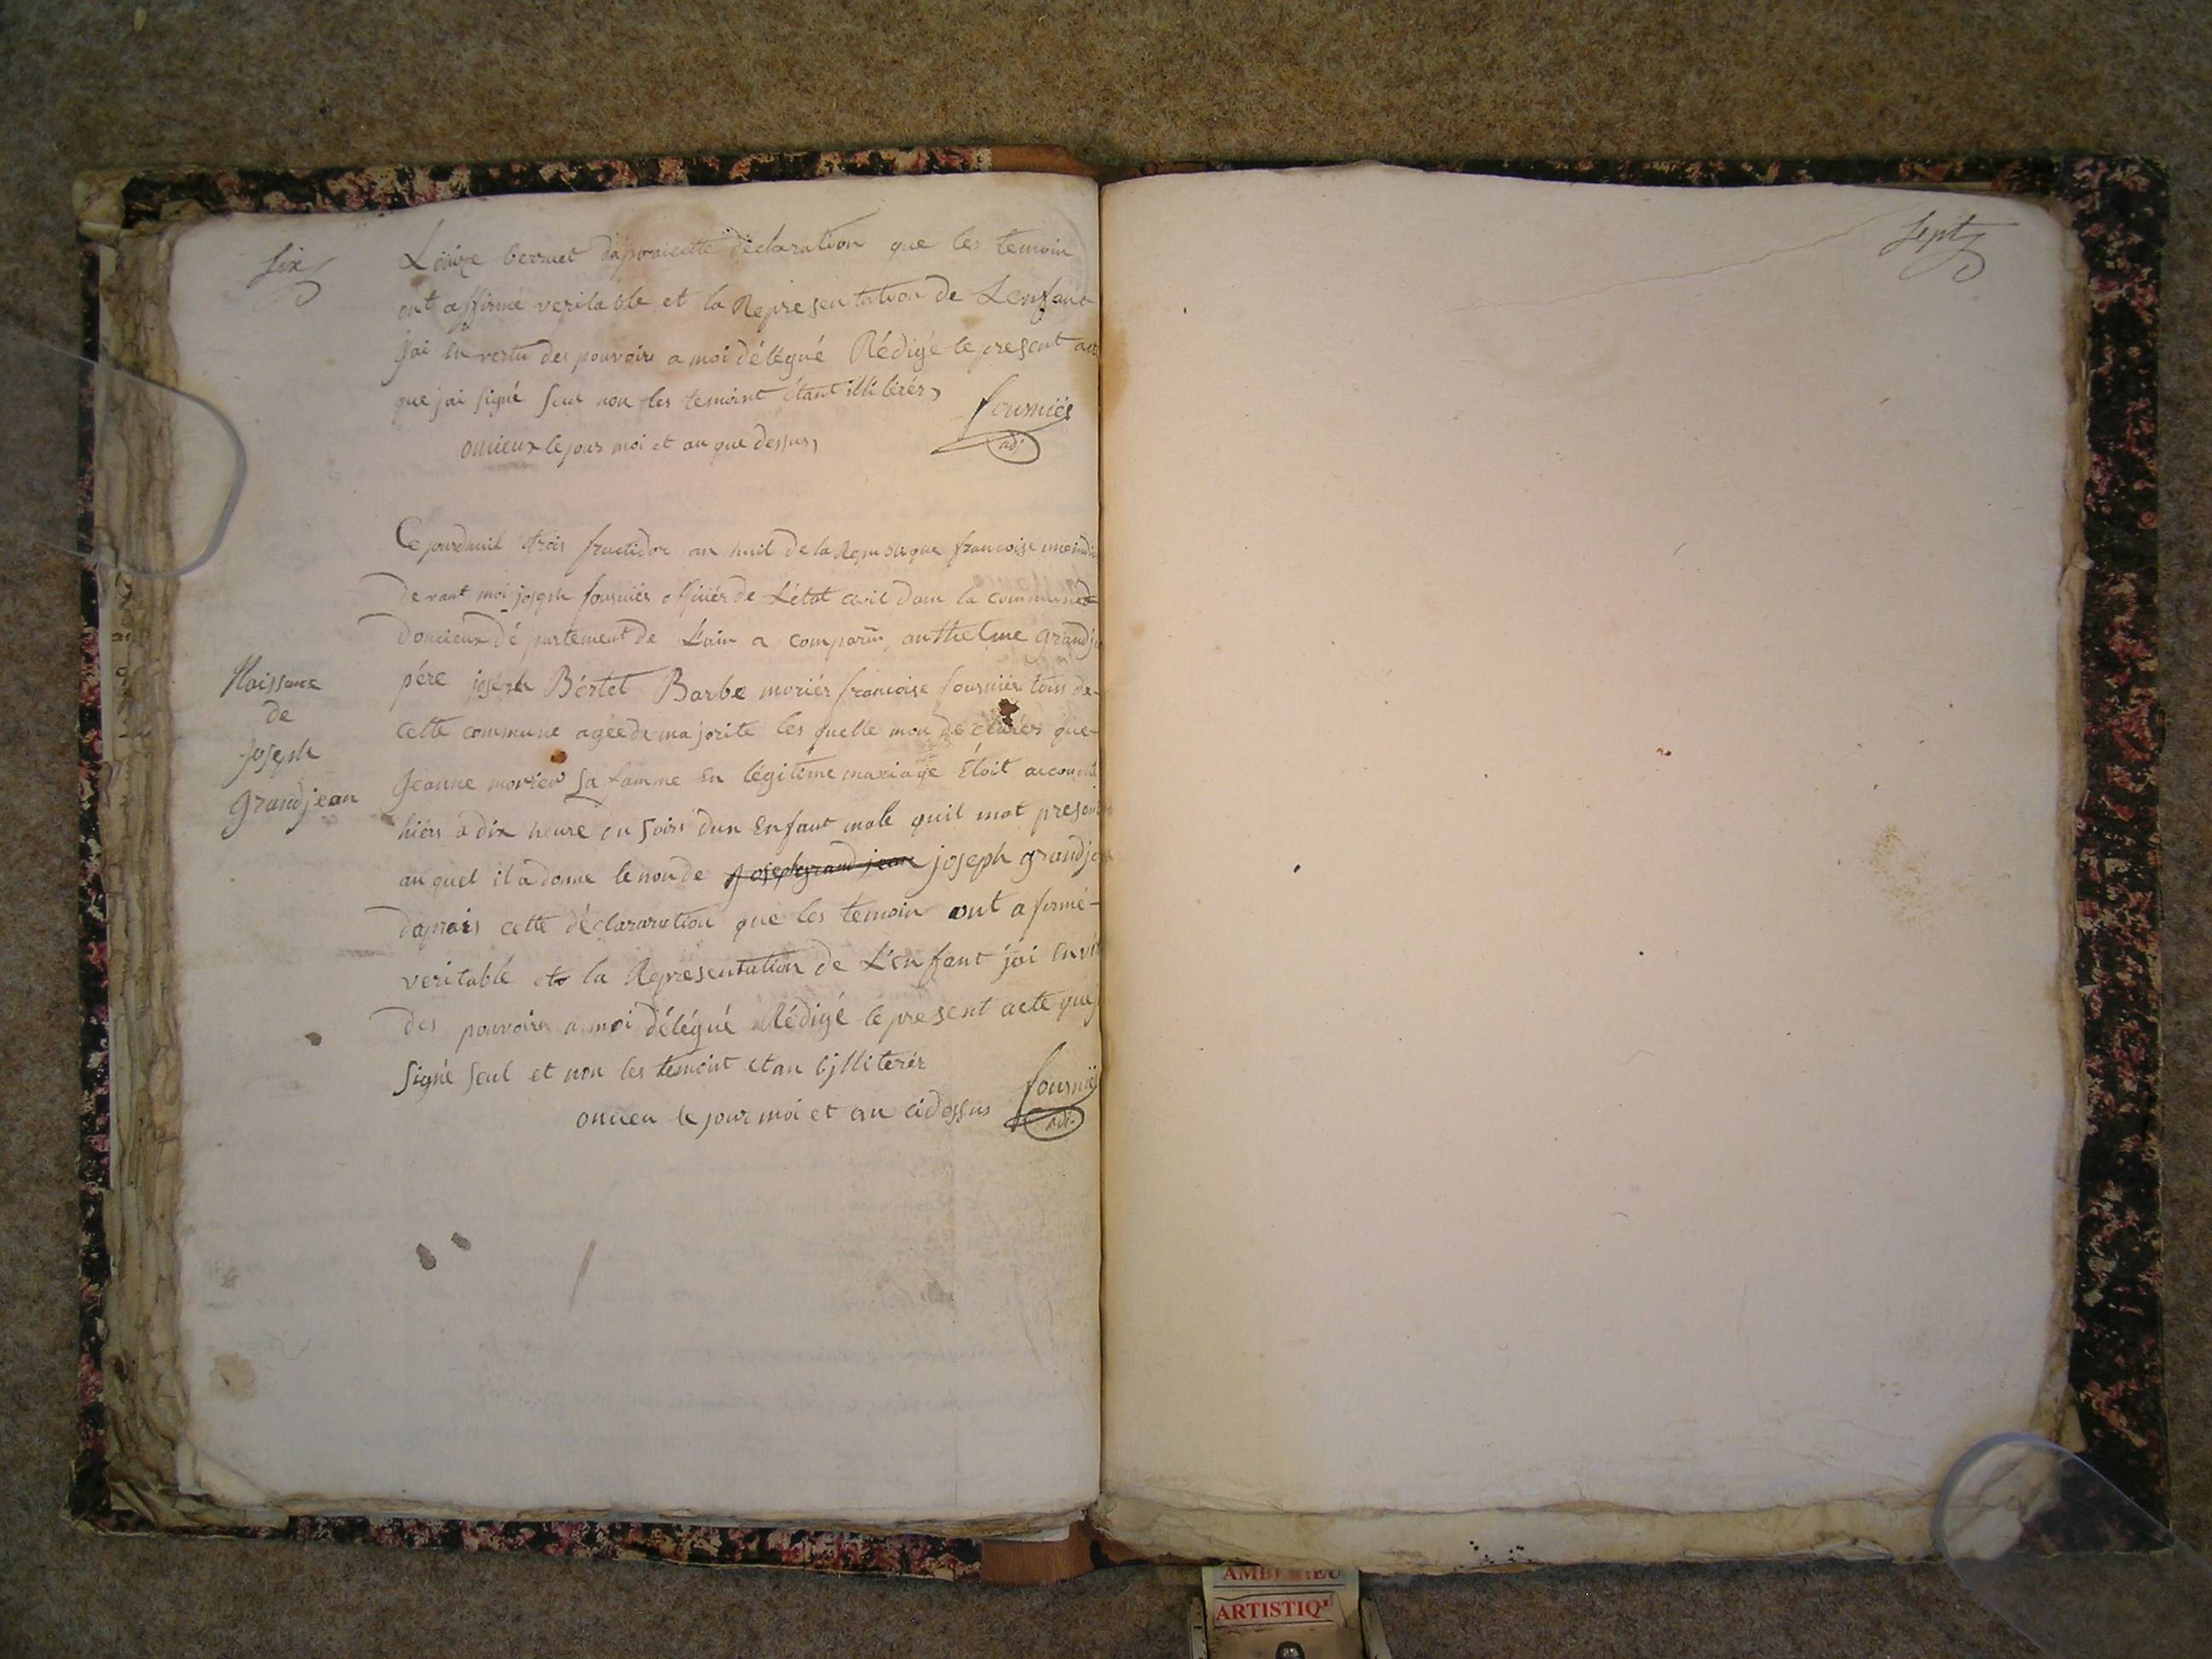 six
Louize berruet daprai cette déclaration que les temoin
ont affirmé veritable et la Representation de Lenfant
jai en vertu des pouvoirs a moi délégué Rédigé le present act
que jai signé seul non les temoint étant illiterés,
fourniér
adj
oncieux le jour moi et an que dessus,
Ce jourdhuil trois fructidor an huil de la Republique francoise
devant moi joseph fourniér officiér de L'état civil dans la commune
doncieux département de Lain a comparu anthelme grandj
pére joseph Bértet Barbe moriér francoise fourniér tous de-
cette commune agée de majorite les quelle mon déclarér que-
Naissance
de
Joseph
grandjean
Jeanne morier sa famme en légitime mariage étoit accouché
hiér à dix heure du soir dun Enfant male quil mat presen
auquel il a donne le non de Joseph grand jean joseph grandj
daprais cette déclararation que les temoin ont afirmé-
veritable et la Representation de L'enfant jai en
des pouvoirs a moi délégué Rédigé le present acte que
signé seul et non les temoint etan illiterér
fournié
adj.
oncieu le jour moi et an cidessus
sept
AMBERIEU
ARTISTIQ